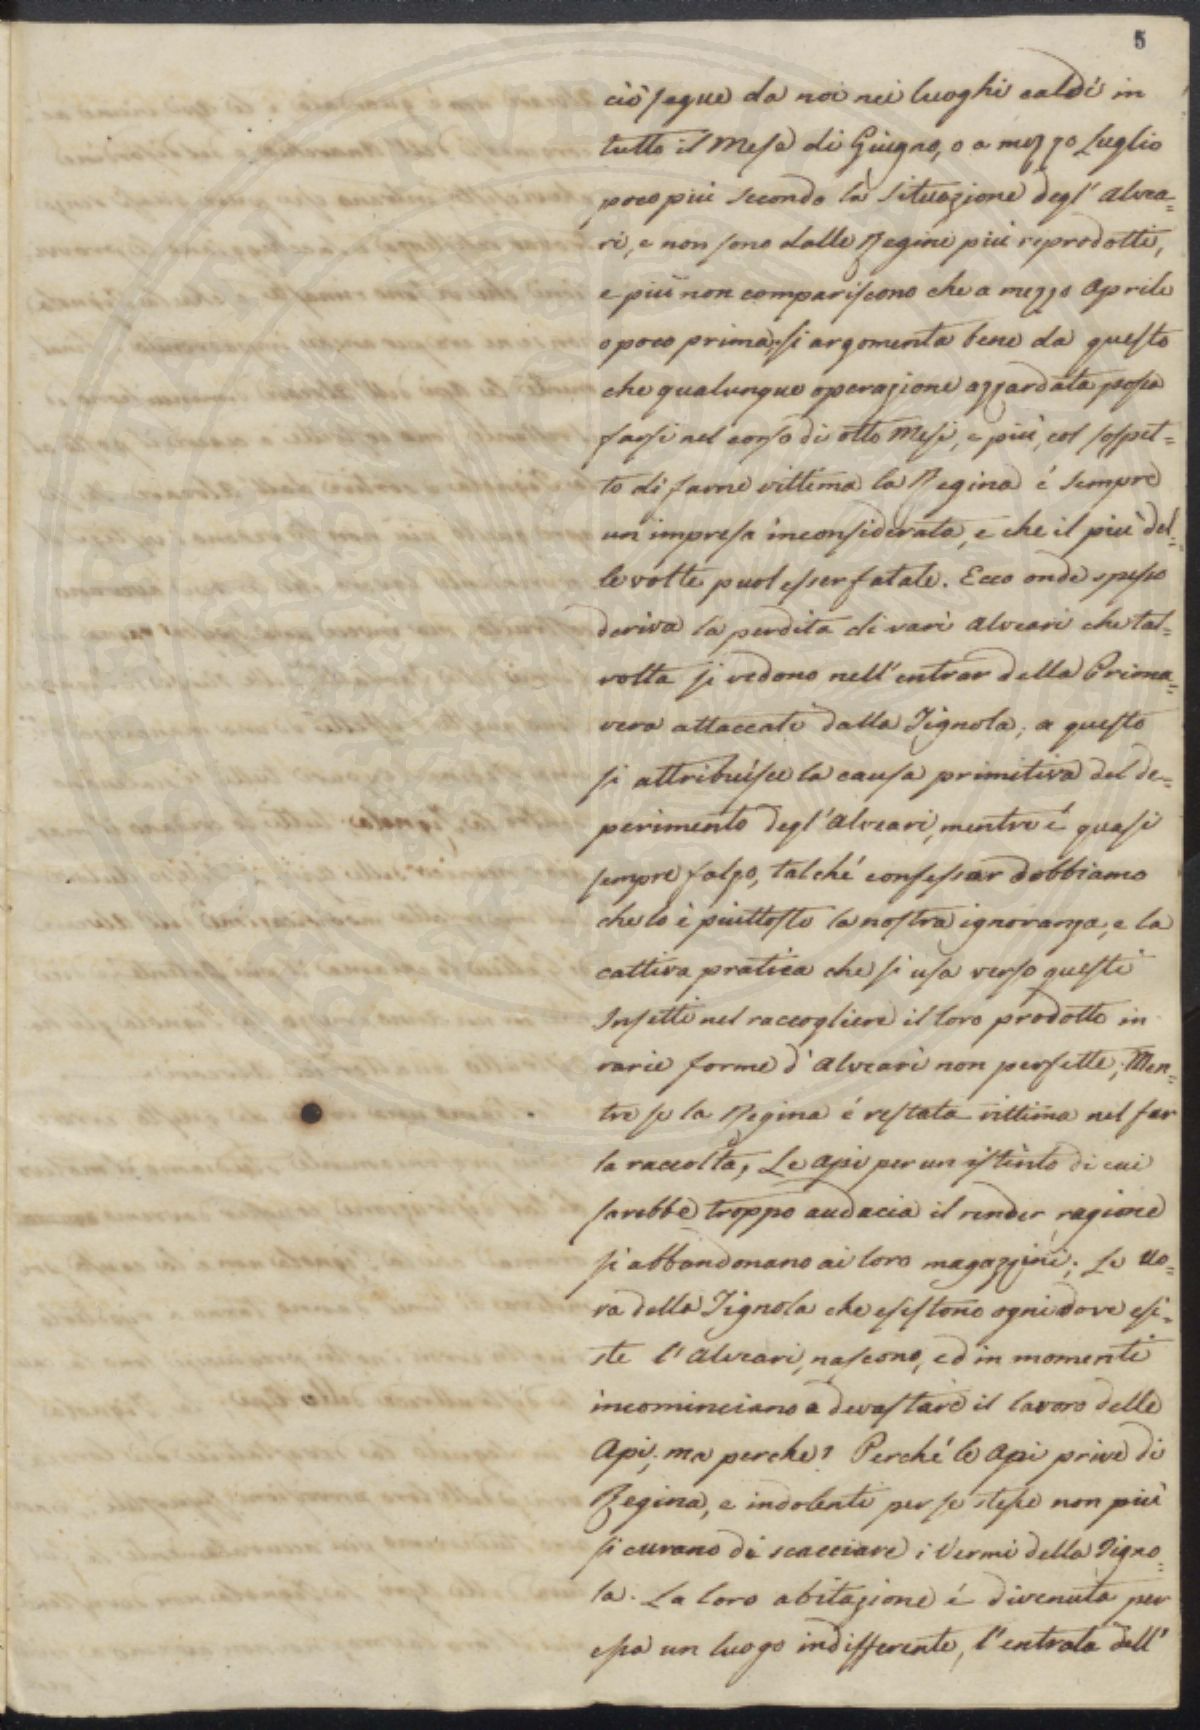 5
ciò segue da noi nei luoghi caldi in
tutto il Mese di Giugno, o a mezzo Luglio
poco più secondo la situazione degl' Alvea=
ri, e non sono dalle Regine più riprodotti,
e più non compariscono che a mezzo Aprile
o poco prima; si argomenta bene da questo
che qualunque operazione azzardata possa
farsi nel corso di otto Mesi, e più, col sospet=
to di farne vittima la Regina é sempre
un impresa inconsiderata, e che il più del=
le volte puol esser fatale. Ecco onde spesso
deriva la perdita di vari Alveari che tal=
volta si vedono nell' entrar della Prima=
vera attaccati dalla Tignola; a questo
si attribuisce la causa primitiva del de=
perimento degl' Alveari, mentre é quasi
sempre falso, talché confessar dobbiamo
che lo è piuttosto la nostra ignoranza, e la
cattiva pratica che si usa verso questi
Insetti nel raccogliere il loro prodotto in
varie forme d' Alveari non perfette; Men=
tre se la Regina é restata vittima nel far
la raccolta, Le Api per un istinto di cui
sarebbe troppo audacia il render ragione
si abbandonano ai loro magazzini; Le Uo=
va della Tignola che esistono ogni dove esi=
ste l' Alveari, nascono, ed in momenti
incominciano a devastare il lavoro delle
Api; ma perche? Perché le Api prive di
Regina, e indolenti per se stesse non più
si curano di scacciare i Vermi della Tigno=
la. La loro abitazione é divenuta per
esse un luogo indifferente, l'entrata dell'